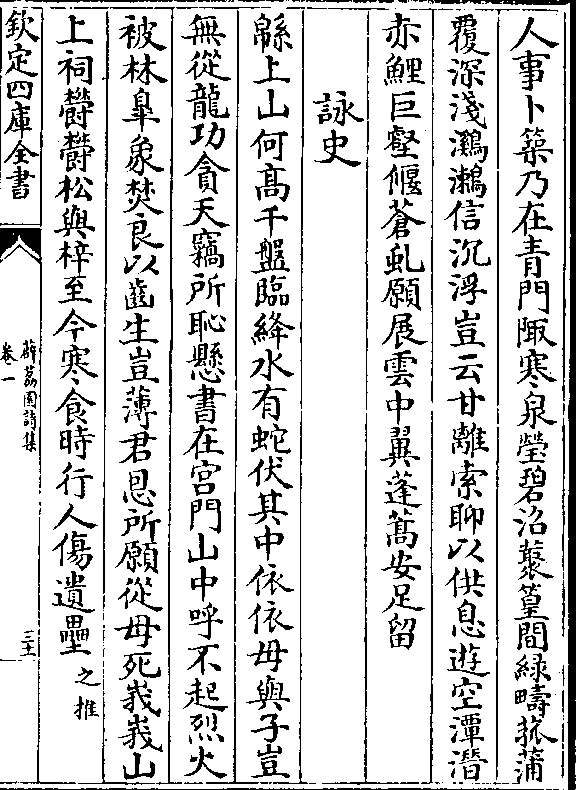 人事卜築乃在青門陬寒泉瑩碧沼叢篁間緑疇菰蒲
覆深淺鸂鷘信沉浮豈云甘離索聊以供息遊空潭潛
赤鯉巨壑偃蒼虬願展雲中翼蓬蒿安足留
詠史
緜上山何髙千盤臨絳水有蛇伏其中依依母與子豈
無從龍功貪天竊所恥懸書在宫門山中呼不起烈火
被林臯象焚良以齒生豈薄君恩所願從母死峩峩山
上祠欝欝松與梓至今寒食時行人傷遺壘之推
欽定四庫全書
薜荔園詩集
卷一